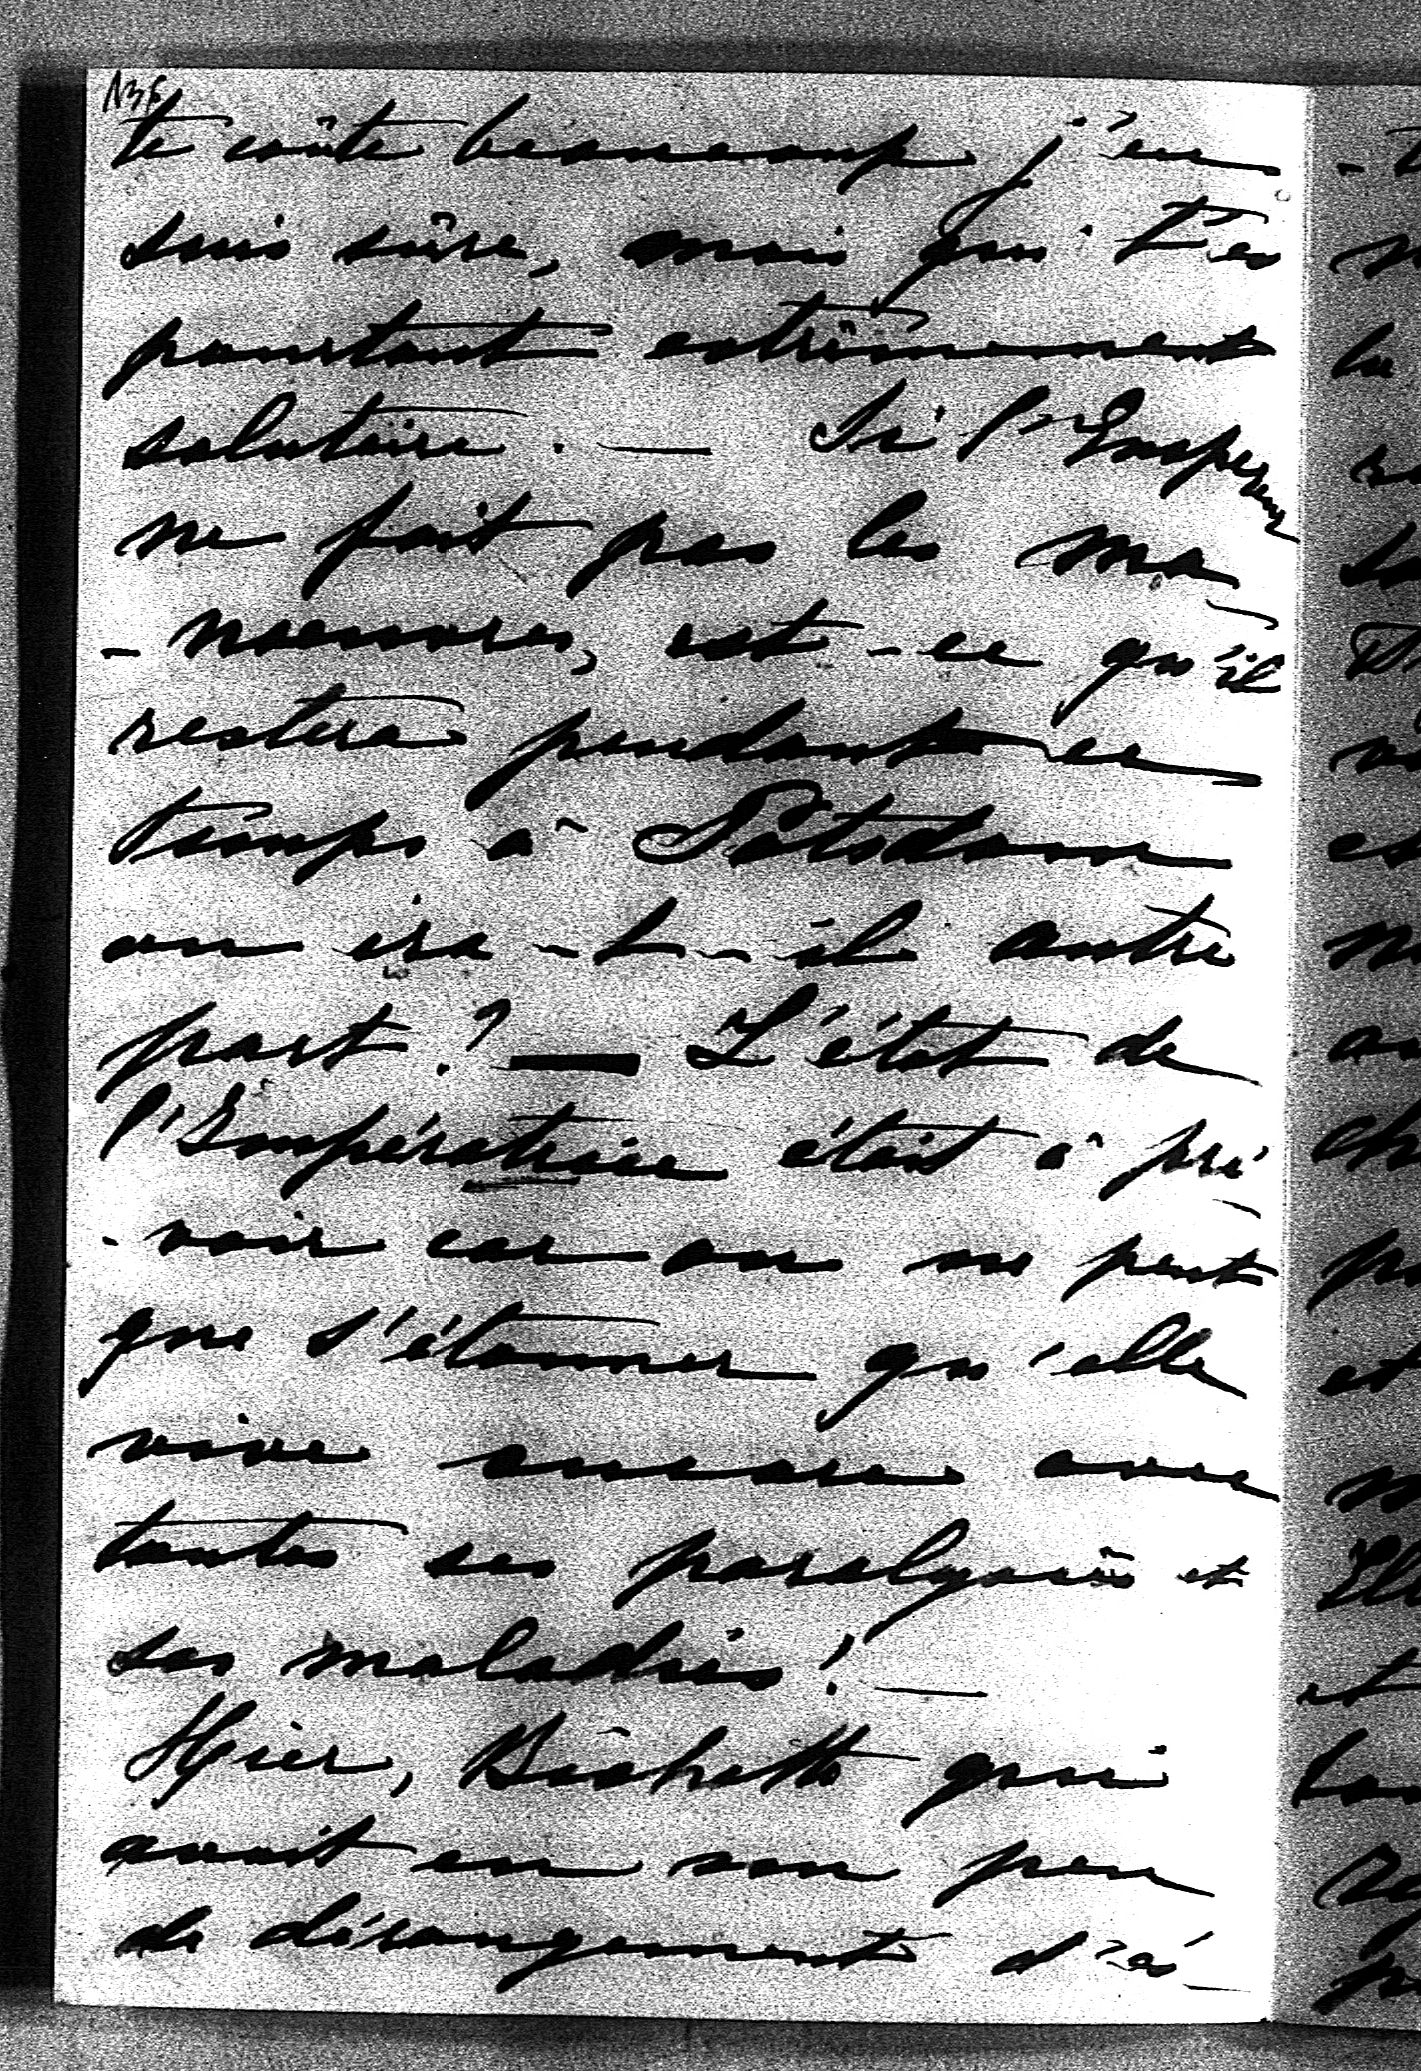 136
te coûte beaucoup j'en
suis sûre, mais qui t'es
pourtant extrêmement
salutaire. — Si l'Empereur
ne fait pas les ma
- noeuvres, est-ce qu'il
restera pendant ce
temps à Potsdam
ou ira-t-il autre
part? — L'état de
l'Impératrice était à pré
- voir car on ne peut
que s'étonner qu'elle
vive encore avec
toutes ses paralysies et
ses maladies! —
Hier, Bichette qui
avait eu un peu
de dérangement d'es